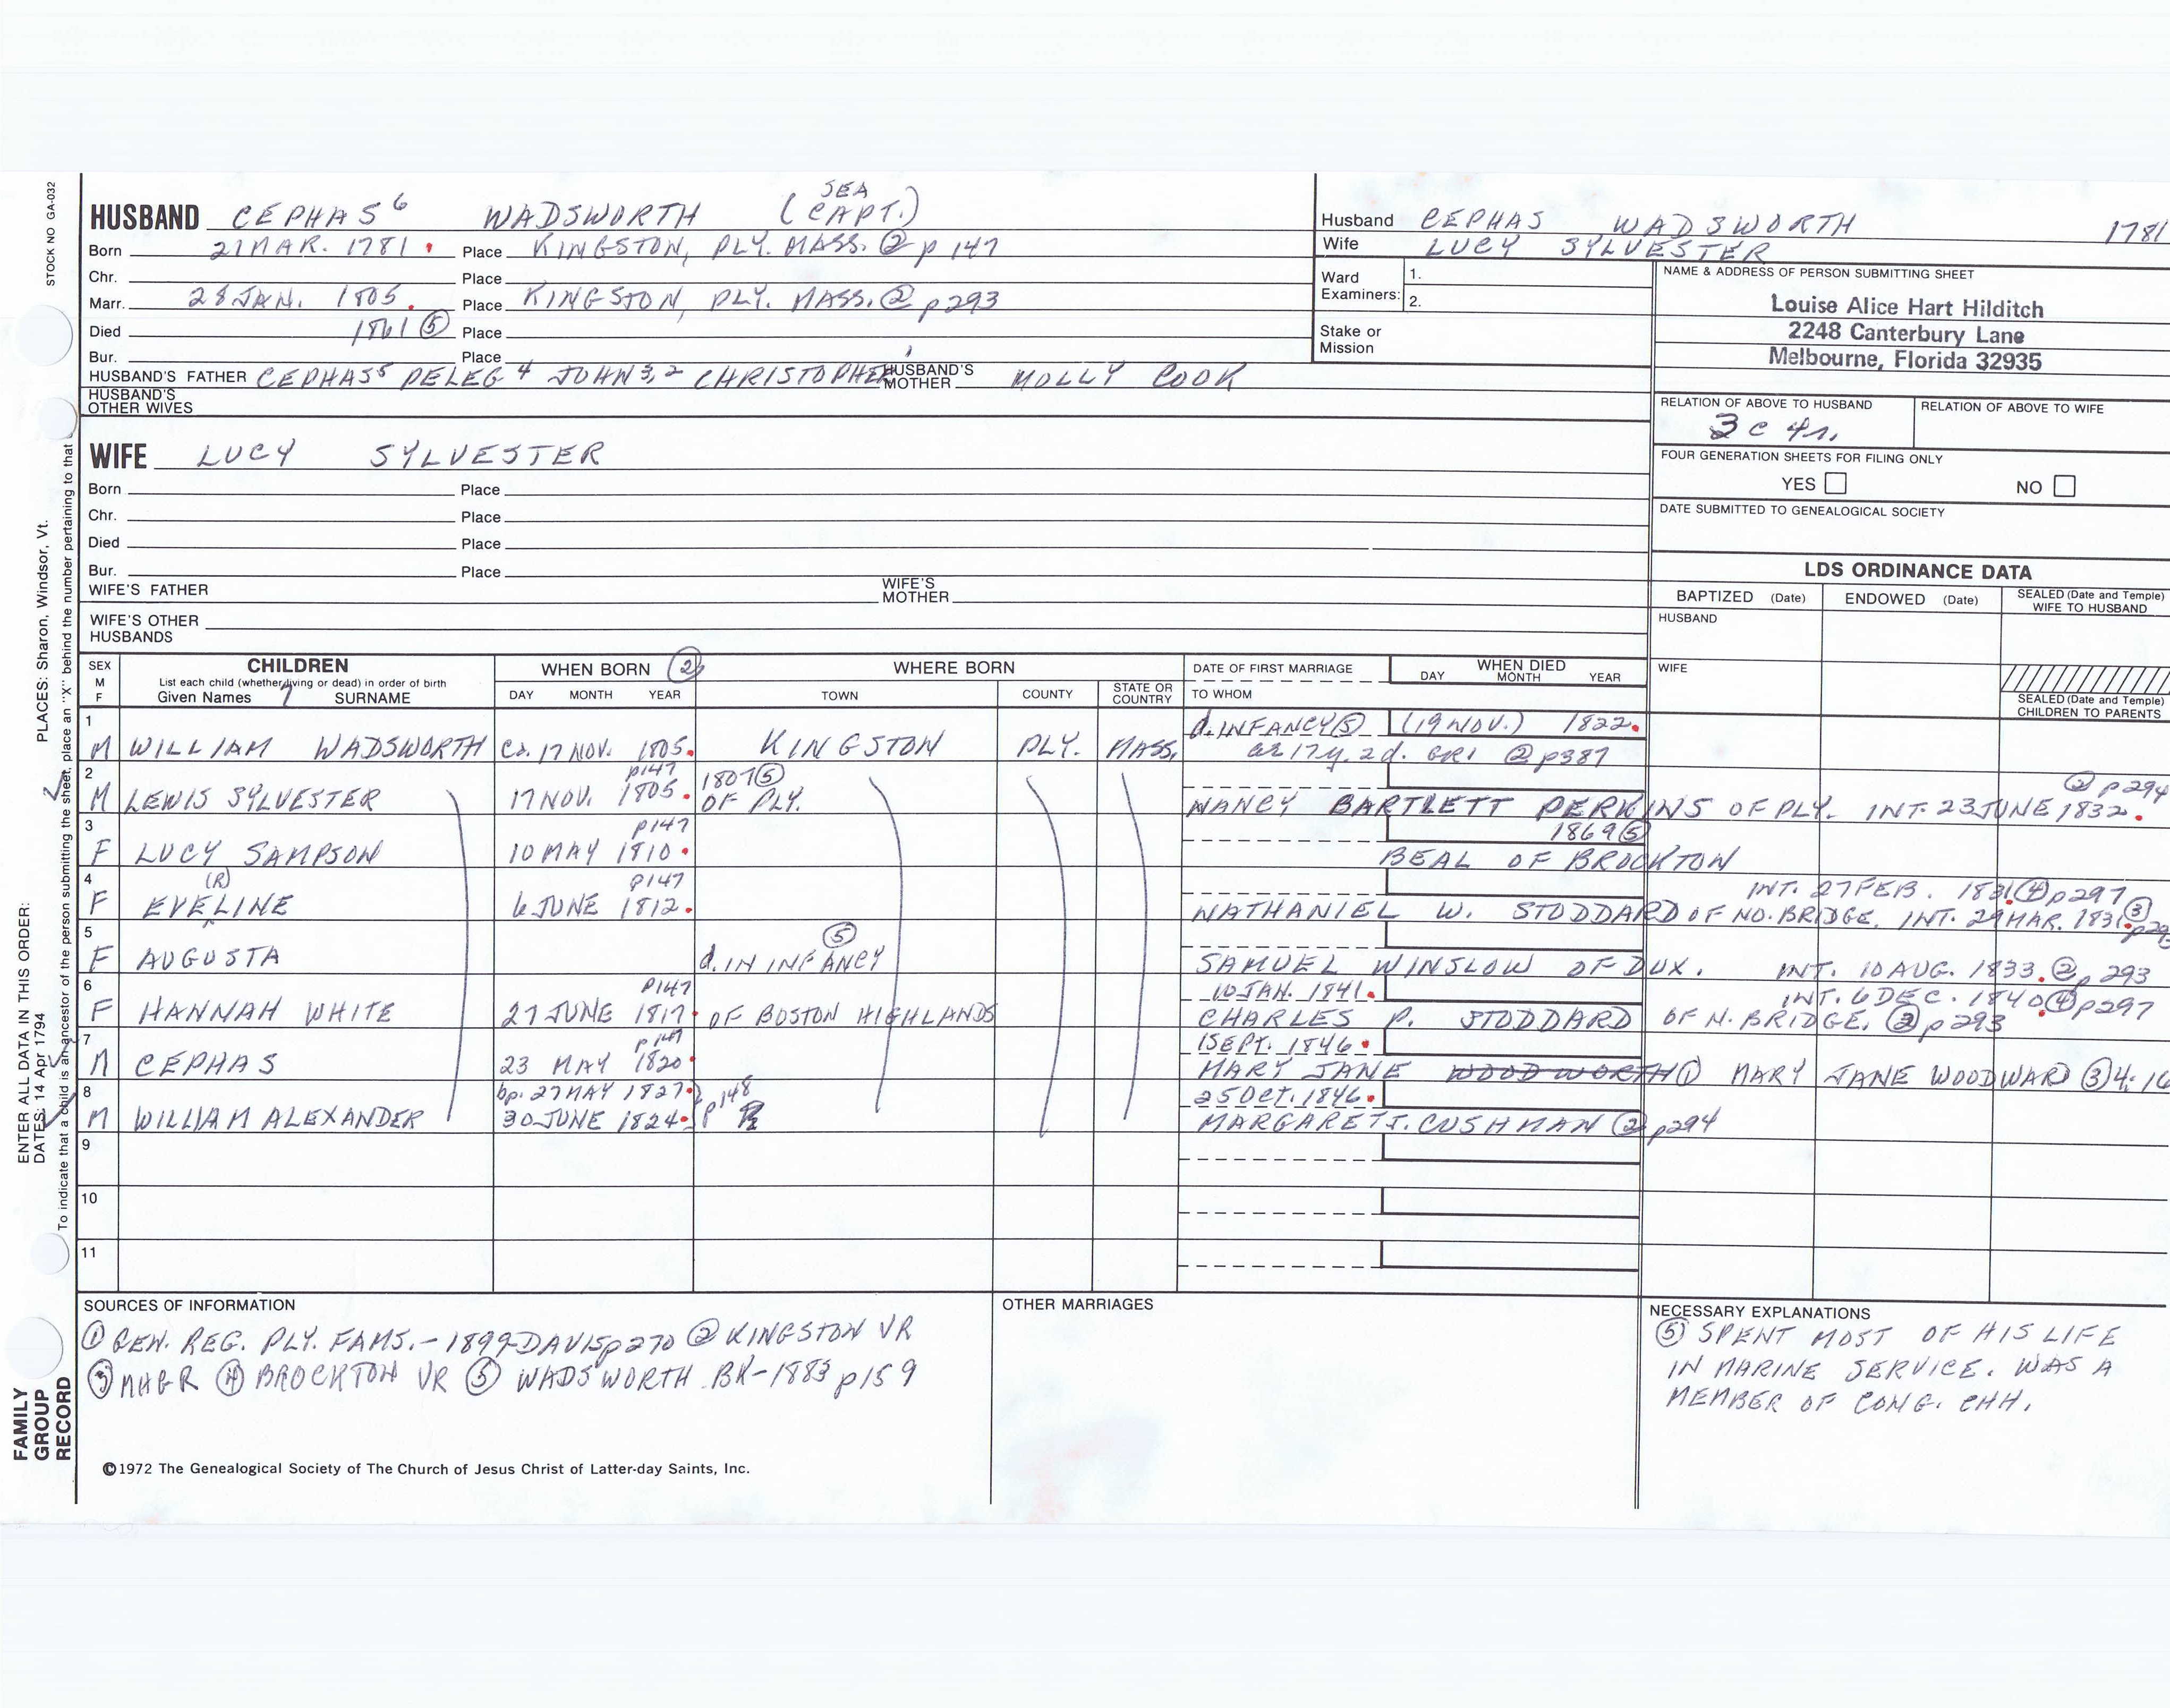 STOCK NO GA-032
HUSBAND CEPHAS⁶ WADSWORTH (SEA CAPT.)
Born 21 MAR. 1781. Place KINGSTON, PLY. MASS. ② p 147
Chr. Place
Marr. 28 JAN. 1805. Place KINGSTON, PLY. MASS. ② p293
Died 1861 ⑤ Place
Bur. Place
HUSBAND'S FATHER CEPHAS⁵ PELEG⁴ JOHN³,² CHRISTOPHER HUSBAND'S MOTHER MOLLY COOK
HUSBAND'S OTHER WIVES
Husband CEPHAS WADSWORTH 1781
Wife LUCY SYLVESTER
Ward Examiners: 1.
2.
Stake or Mission
NAME & ADDRESS OF PERSON SUBMITTING SHEET
Louise Alice Hart Hilditch
2248 Canterbury Lane
Melbourne, Florida 32935
RELATION OF ABOVE TO HUSBAND RELATION OF ABOVE TO WIFE
3 c 4r.
FOUR GENERATION SHEETS FOR FILING ONLY
YES NO
DATE SUBMITTED TO GENEALOGICAL SOCIETY
WIFE LUCY SYLVESTER
Born Place
Chr. Place
Died Place
Bur. Place
WIFE'S FATHER WIFE'S MOTHER
WIFE'S OTHER HUSBANDS
LDS ORDINANCE DATA
BAPTIZED (Date) ENDOWED (Date) SEALED (Date and Temple) WIFE TO HUSBAND
HUSBAND
WIFE
SEALED (Date and Temple) CHILDREN TO PARENTS
SEX M F CHILDREN WHEN BORN ② WHERE BORN DATE OF FIRST MARRIAGE WHEN DIED
List each child (whether living or dead) in order of birth DAY MONTH YEAR
Given Names 7 SURNAME DAY MONTH YEAR TOWN COUNTY STATE OR COUNTRY TO WHOM
1 d. INFANCY ⑤ (19 NOV.) 1822.
M WILLIAM WADSWORTH ca. 17 NOV. 1805. KINGSTON PLY. MASS. ae 17y. 2d. GR1 ② p387
2 p147 1807 ⑤ ② p294
M LEWIS SYLVESTER 17 NOV. 1805. OF PLY. NANCY BARTLETT PERKINS OF PLY. INT. 23 JUNE 1832.
3 p147 1869 ⑤
F LUCY SAMPSON 10 MAY 1810. BEAL OF BROCKTON
4 (R) p147 INT. 27 FEB. 1831. ④ p297
F EVELINE 6 JUNE 1812. NATHANIEL W. STODDARD OF NO. BRIDGE. INT. 29 MAR. 1831. ③
5 ⑤
F AUGUSTA d. IN INFANCY SAMUEL WINSLOW OF DUX. INT. 10 AUG. 1833. ② p 293
6 p147 10 JAN. 1841. INT. 6 DEC. 1840. ④ p297
F HANNAH WHITE 27 JUNE 1817. OF BOSTON HIGHLANDS CHARLES P. STODDARD OF N. BRIDGE. ② p293
7 p147 1 SEPT. 1846.
M CEPHAS 23 MAY 1820. MARY JANE WOODWORTH ① MARY JANE WOODWARD ③ 4:16
8 bp. 27 MAY 1827. p148 25 OCT. 1846.
M WILLIAM ALEXANDER 30 JUNE 1824. MARGARET J. CUSHMAN ② p294
9
10
11
SOURCES OF INFORMATION
① GEN. REG. PLY. FAMS. - 1899-DAVIS p270 ② KINGSTON VR
③ NHGR ④ BROCKTON VR ⑤ WADSWORTH BK-1883 p159
OTHER MARRIAGES
NECESSARY EXPLANATIONS
⑤ SPENT MOST OF HIS LIFE
IN MARINE SERVICE. WAS A
MEMBER OF CONG. CHH.
©1972 The Genealogical Society of The Church of Jesus Christ of Latter-day Saints, Inc.
ENTER ALL DATA IN THIS ORDER:
DATES: 14 Apr 1794 PLACES: Sharon, Windsor, Vt.
To indicate that a child is an ancestor of the person submitting the sheet, place an "X" behind the number pertaining to that
FAMILY
GROUP
RECORD